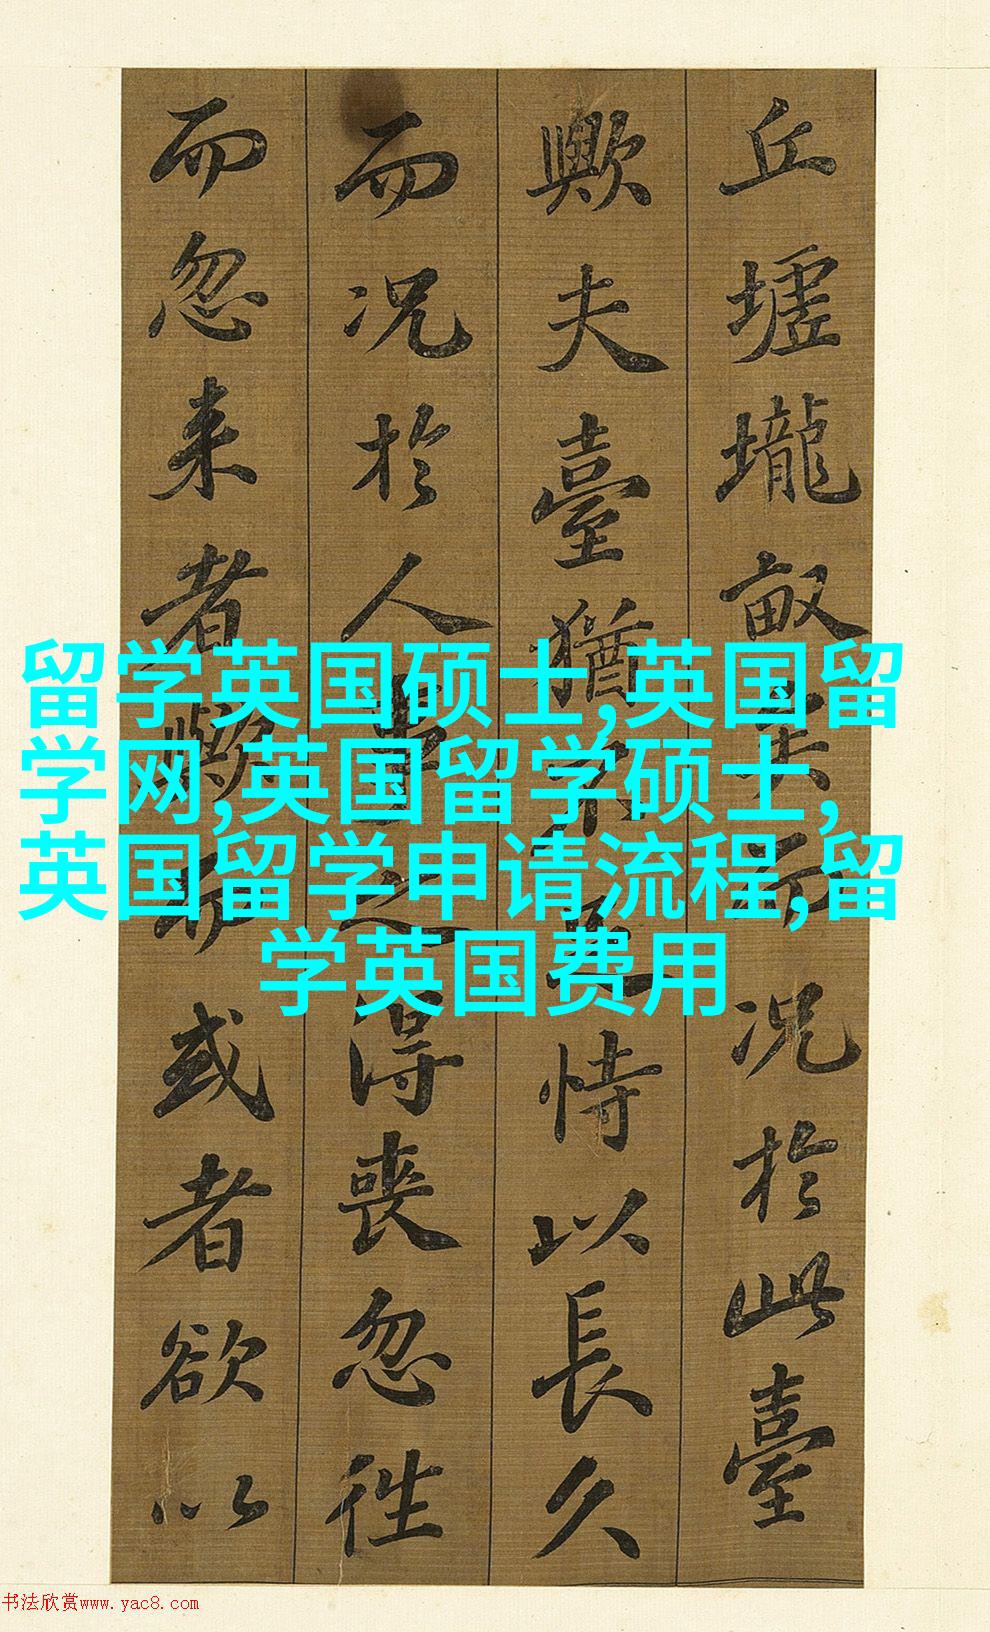 丘墟壠畝矣而况於此臺
歟夫臺猶不足恃以長久
而况於人事之得喪忽徃
而忽来者歟而或者欲以
留学英国硕士,英国留
学网,英国留学硕士,
英国留学申请流程,留
学英国费用
书法欣赏www.yac8.com